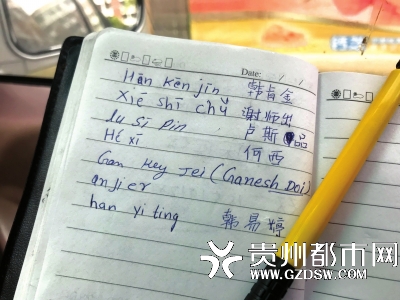 Date: / /
Hán kěn jīn 韩肯金
Xiè shī chū 谢师出
lu si pin 卢斯品
Hé xī 何西
Gan Hey Jei (Ganesh Doi)
anjier
han yi ting 韩易婷
贵州都市网
WWW.GZDSW.COM